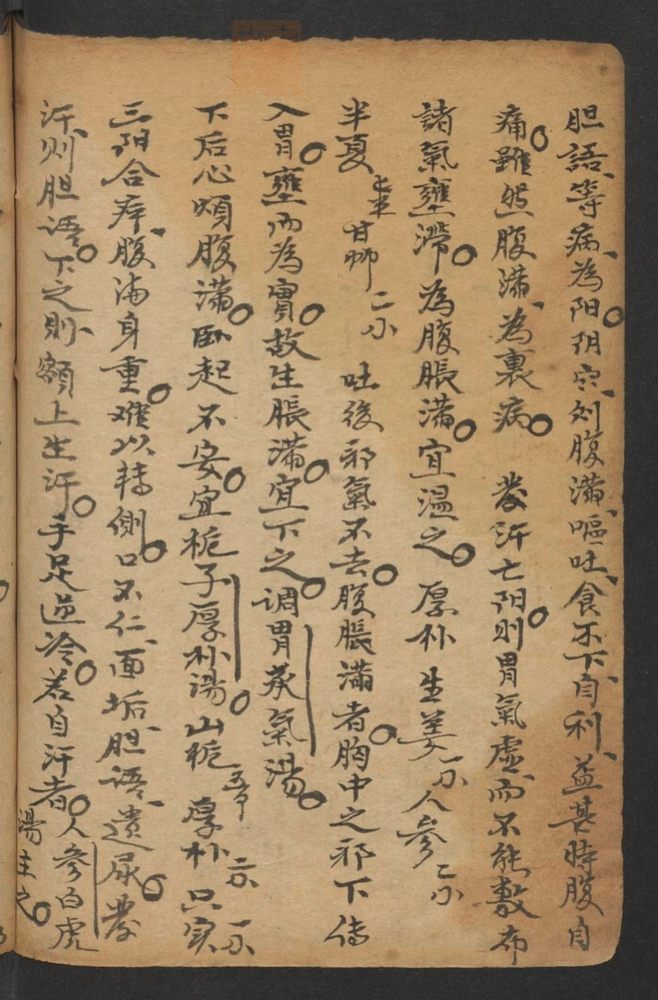 胆語、等病、為阳阴症、则腹滿、嘔吐、食不下、自利、益甚、時腹自
痛。雖然腹滿、為裏病。 發汗亡阳。则胃氣虛、而不能敷布
諸氣壅滯。為腹脹滿。宜温之。 厚朴 生姜 人參
半夏 甘艸 吐後邪氣不去。腹脹滿者。胸中之邪下傳
入胃。壅而為實。故生脹滿。宜下之。调胃承氣湯。
下后心煩腹滿。卧起不安。宜栀子厚朴湯。山栀 厚朴 只实
三阳合病、腹滿身重。难以轉側。口不仁、面垢、胆語、遺尿。發
汗、则胆語。下之则、額上生汗。手足逆冷。若自汗者。人參白虎
湯主之。